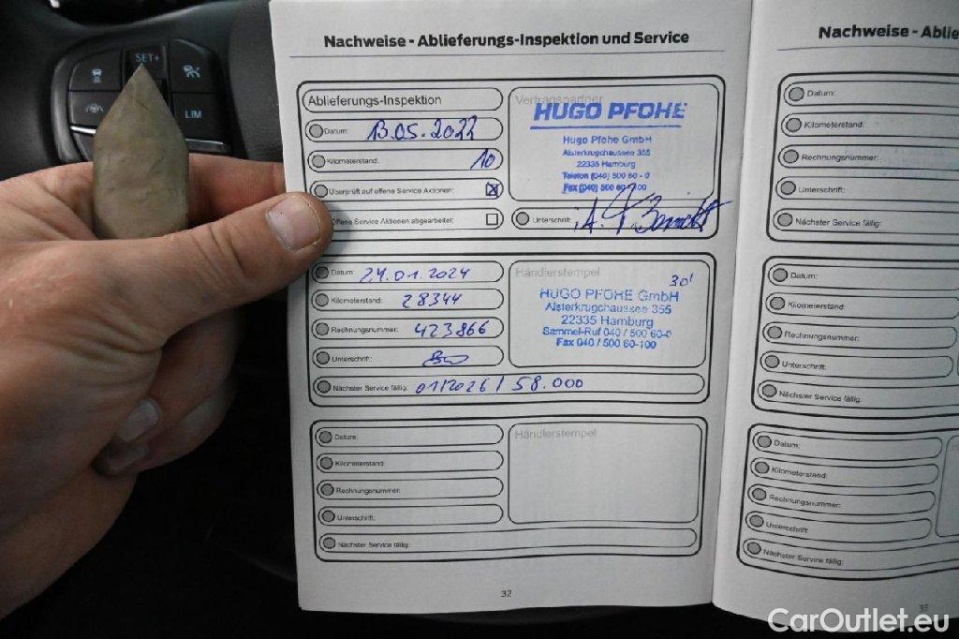 SET+
LIM
Nachweise - Ablieferungs-Inspektion und Service
Ablieferungs-Inspektion
Datum: 13.05.2022
Kilometerstand: 10
Überprüft auf offene Service Aktionen:
ffene Service Aktionen abgearbeitet:
Vertragspartner
HUGO PFOHE
Hugo Pfohe GmbH
Alsterkrugchaussee 355
22335 Hamburg
Telefon (040) 500 60 - 0
Fax (040) 500 60 - 100
Unterschrift:
Datum: 24.01.2024
Kilometerstand: 28344
Rechnungsnummer: 423866
Unterschrift:
Nächster Service fällig: 01/2026 / 58.000
Händlerstempel
30'
HUGO PFOHE GmbH
Alsterkrugchaussee 355
22335 Hamburg
Sammel-Ruf 040 / 500 60-0
Fax 040 / 500 60-100
Datum:
Kilometerstand:
Rechnungsnummer:
Unterschrift:
Nächster Service fällig:
Händlerstempel
32
Nachweise - Ablie
Datum:
Kilometerstand:
Rechnungsnummer:
Unterschrift:
Nächster Service fällig:
Datum:
Kilometerstand:
Rechnungsnummer:
Unterschrift:
Nächster Service fällig:
Datum:
Kilometerstand:
Rechnungsnummer:
Unterschrift:
Nächster Service fällig:
CarOutlet.eu